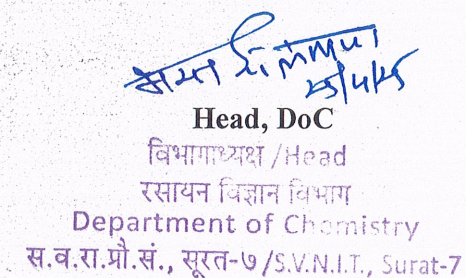 25/4/25
Head, DoC
विभागाध्यक्ष /Head
रसायन विज्ञान विभाग
Department of Chemistry
स.व.रा.प्रौ.सं., सूरत-७/S.V.N.I.T., Surat-7